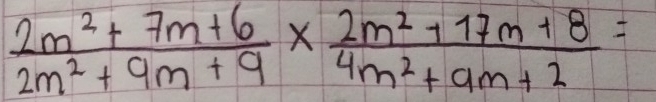 2m² + 7m + 6 / 2m² + 9m + 9 × 2m² + 17m + 8 / 4m² + 9m + 2 =